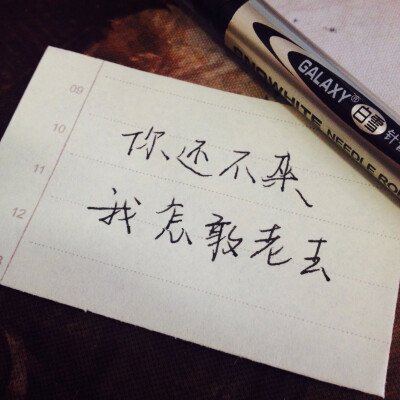 GALAXY® 白雪 针
SNOWHITE NEEDLE RO
09
10
11
12
你还不来
我怎敢老去